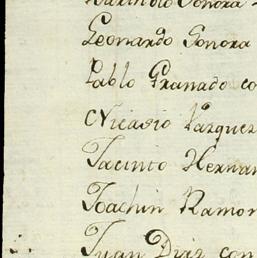 Bartholo Sonora
Leonardo Sonora
Pablo Granado co
Nicasio Vazquez
Jacinto Hernan
Joachin Ramon
Juan Diaz con